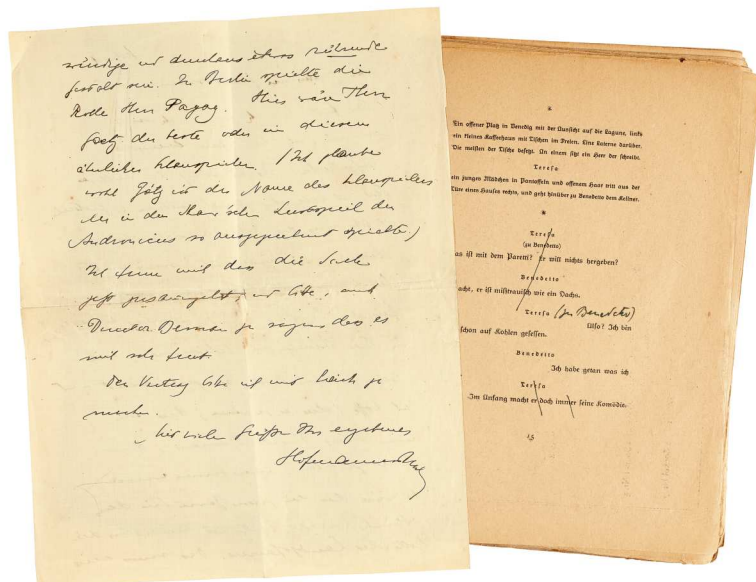 würdige und durchaus etwas rührende
Gestalt sein. In Berlin spielte die
Rolle Herr Pagay. Hier wäre Herr
Goetz der beste oder ein diesem
ähnlicher Schauspieler. (Ich glaube
wohl Götz ist der Name des Schauspielers
der in dem Shaw'schen Lustspiel den
so ausgezeichnet spielte.)
Ich freue mich dass die Sache
jetzt und bitte, auch
Director zu sagen dass es
mich sehr freut.
Den Vertrag bitte ich mir zu
Mit vielen Grüßen Ihr ergebener
Hofmannsthal
*
Ein offener Platz in Venedig mit der Aussicht auf die Lagune, links
ein kleines Kaffeehaus mit Tischen im Freien. Eine Laterne darüber.
Die meisten der Tische besetzt. An einem sitzt ein Herr der schreibt.
Teresa
ein junges Mädchen in Pantoffeln und offenem Haar tritt aus der
Türe eines Hauses rechts, und geht hinüber zu Benedetto dem Kellner.
*
Teresa
(zu Benedetto)
as ist mit dem Paretti? Er will nichts hergeben?
Benedetto
acht, er ist mißtrauisch wie ein Dachs.
Teresa (zu Benedetto)
Also? Ich bin
schon auf Kohlen gesessen.
Benedetto
Ich habe getan was ich
Teresa
Im Anfang macht er doch immer seine Komödie.
15